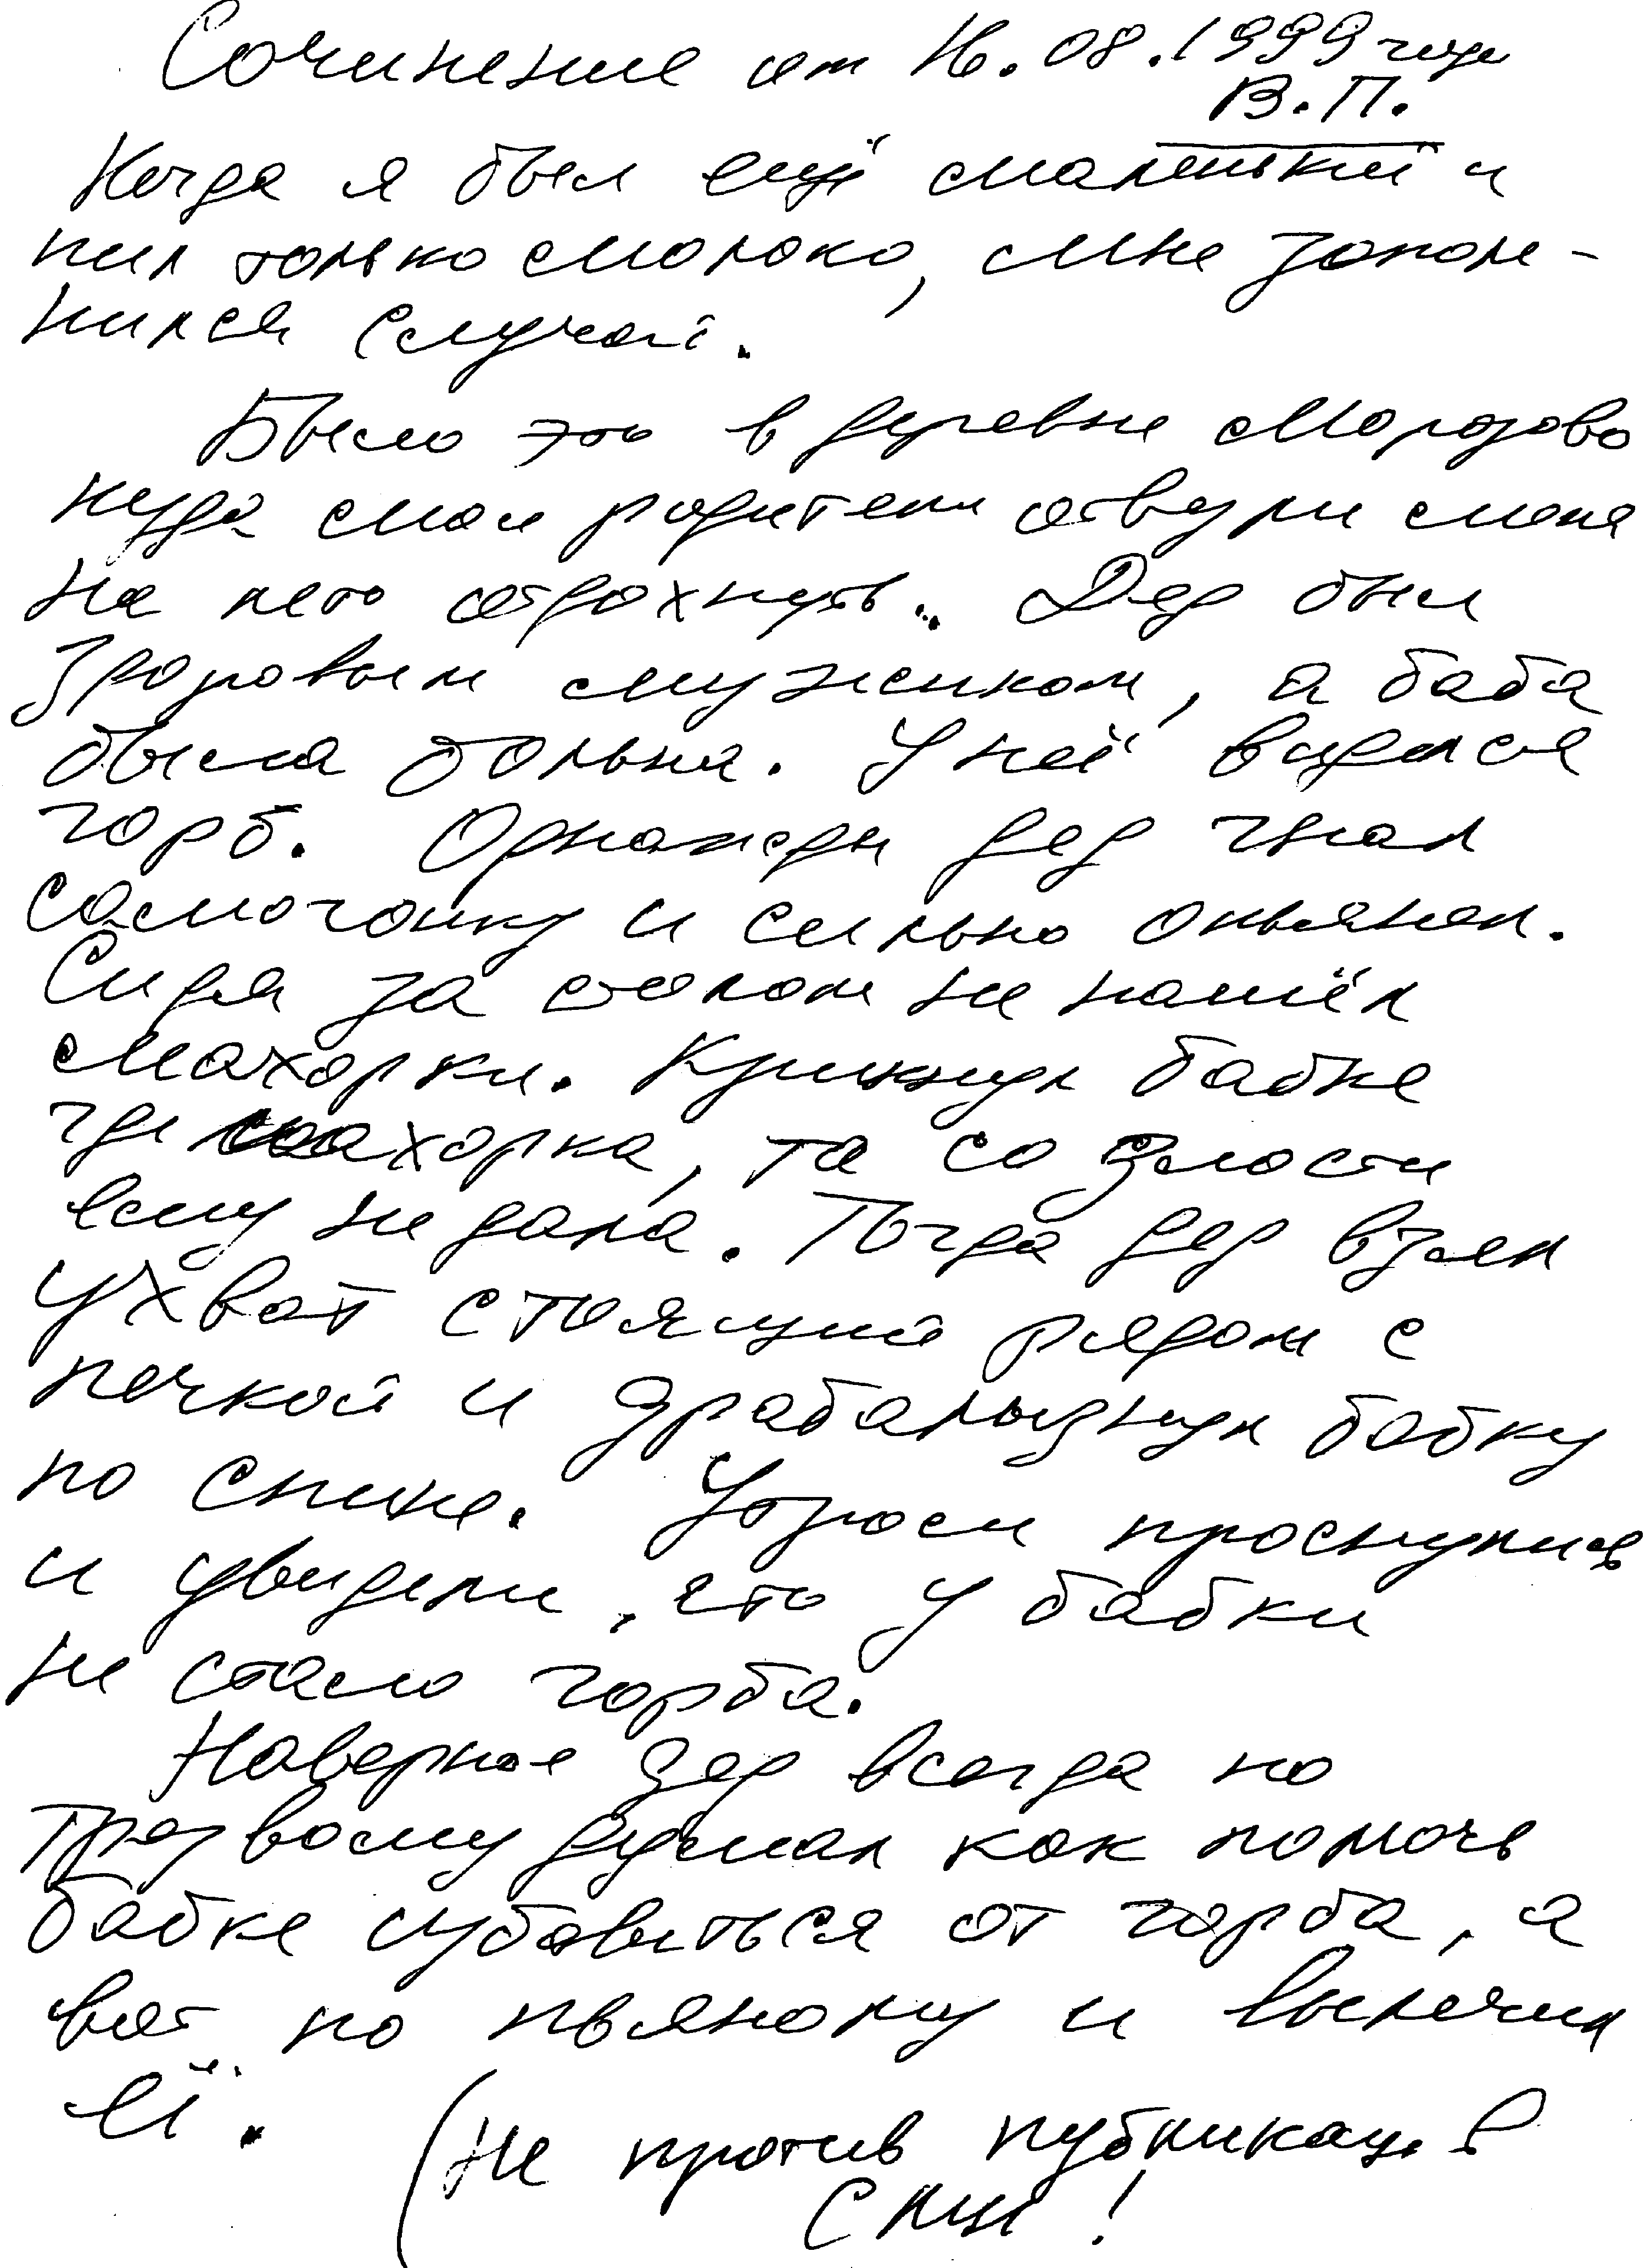 Сочинение от 16.08.1999 года
В.П.
Когда я был ещё маленький и
пил только молоко, мне запом-
нился случай.
Было это в деревне Морозово
куда мои родители отвезли меня
на лето отдохнуть. Дед был
здоровым мужиком, а баба
была больна. У неё виделся
горб. Однажды дед гнал
самогонку и сильно опьянел.
Сидя за столом не нашёл
махорки. Крикнул бабке
где махорка, та со злости
ему не дала. Тогда дед взял
ухват стоящий рядом с
печкой и драбалызнул бабку
по спине. Утром проснулись
и увидели, что у бабки
не стало горба.
Наверное дед всегда по
трезвому думал как помочь
бабке избавиться от горба, а
вот по пьяному и вылечил
её.
(Не против публикации в
СМИ!